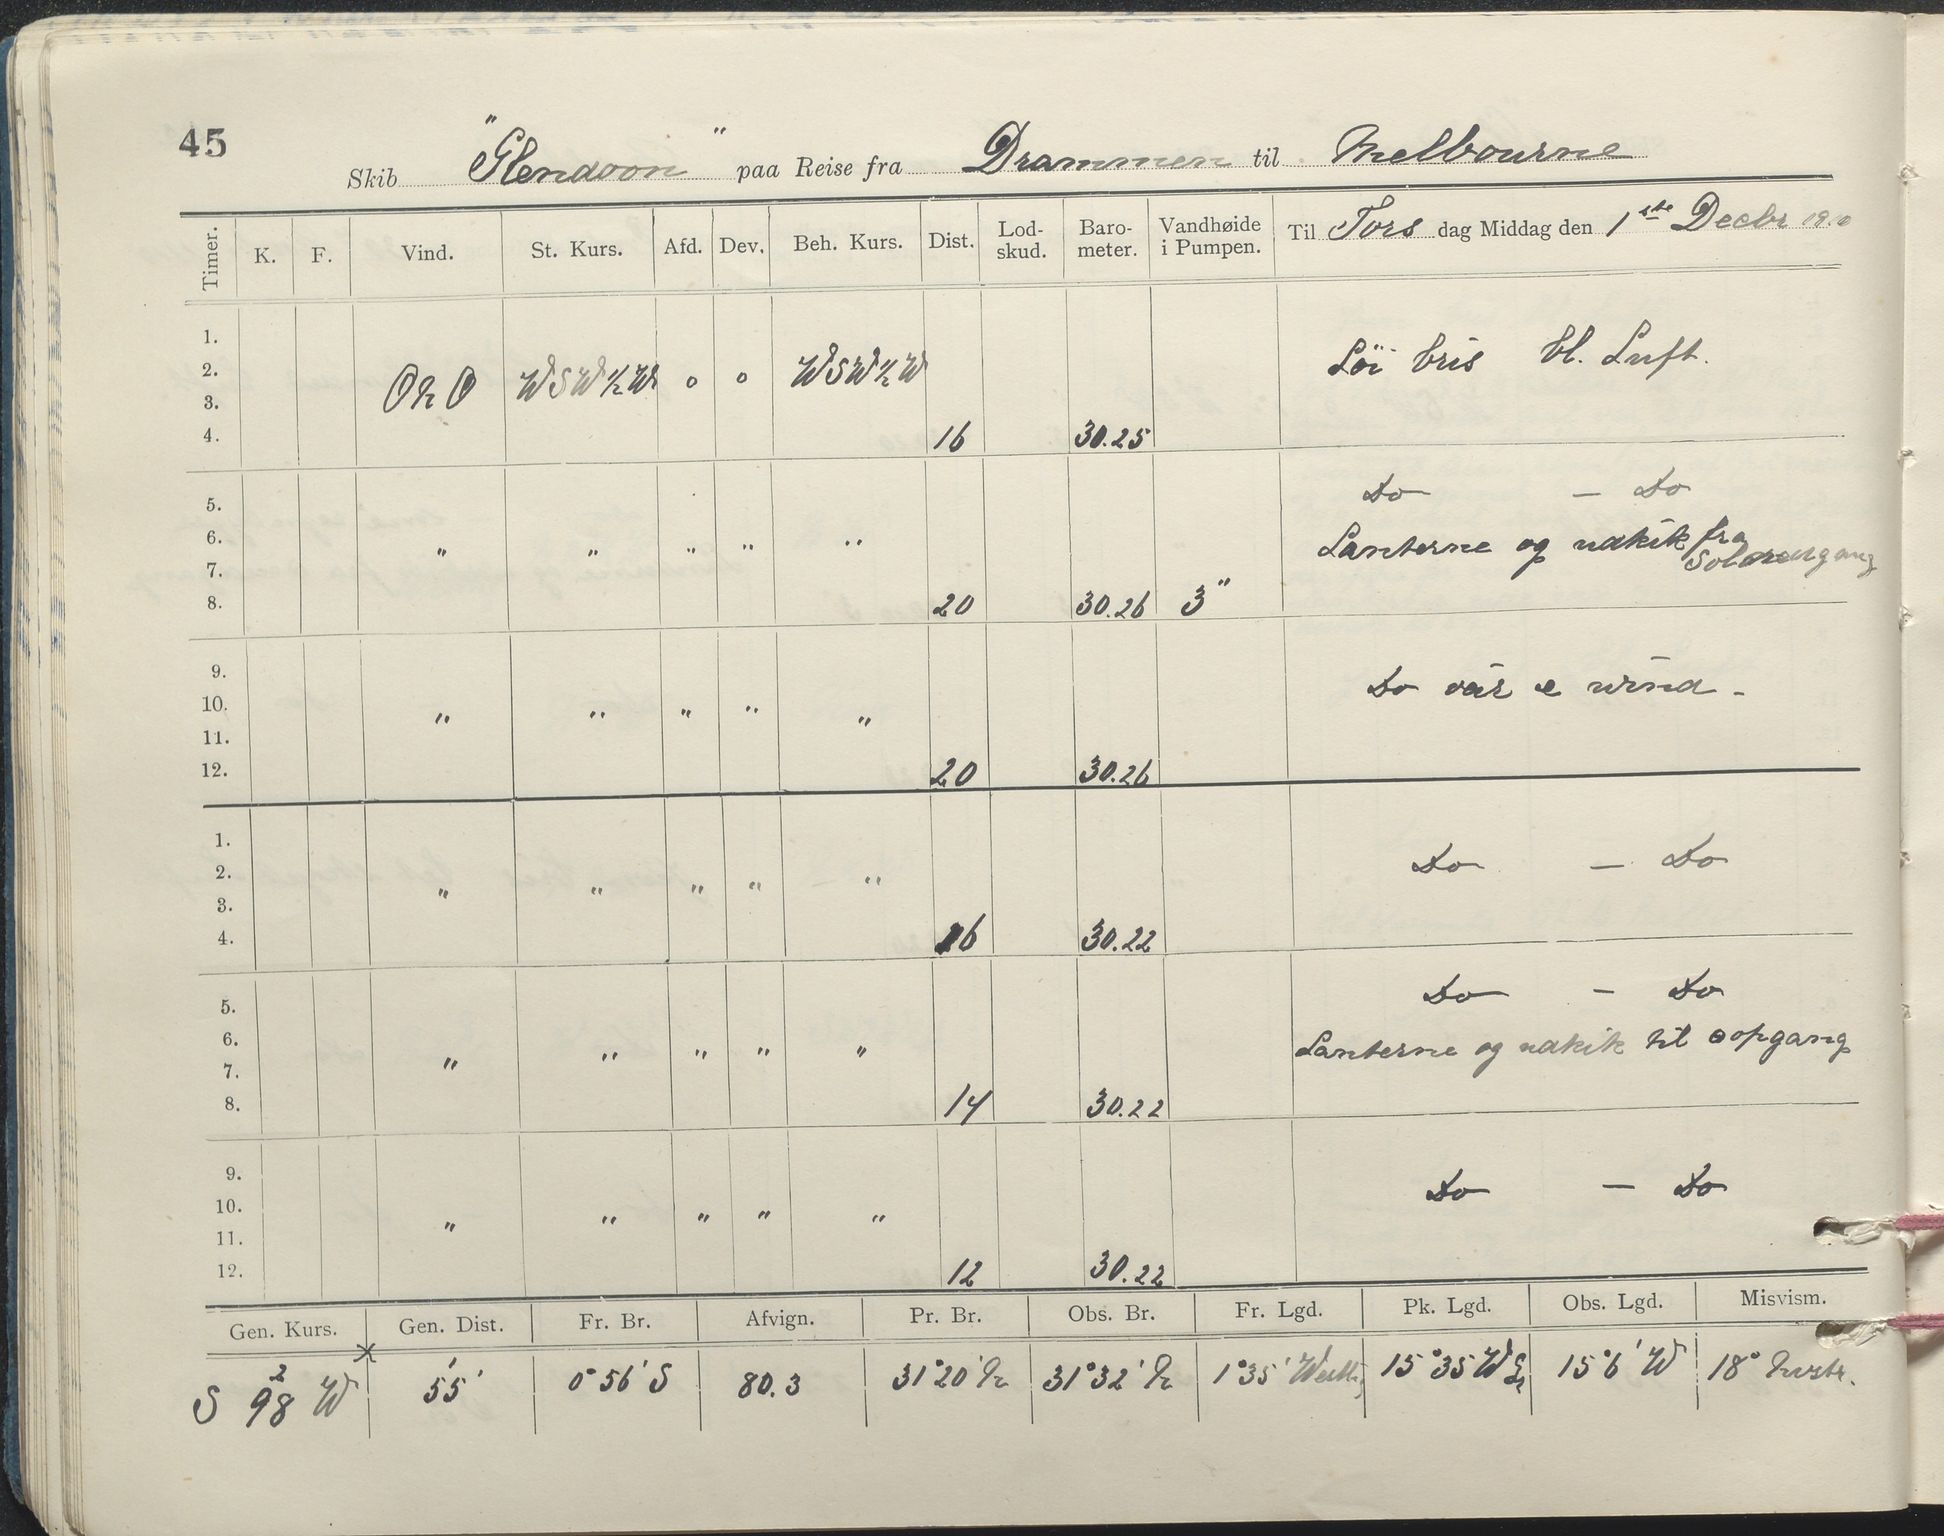 45
Skib "Glendoon" paa Reise fra Drammen til Melbourne
Timer. K. F. Vind. St. Kurs. Afd. Dev. Beh. Kurs. Dist. Lod-skud. Baro-meter. Vandhøide i Pumpen. Til Tors dag Middag den 1ste Decbr 1910
1.
2. ONO WSW½W o o WSW½W Löi bris bl. Luft.
3.
4. 16 30.25
5. Do — Do
6. " " " " " Lanterne og udkik fra
7. Solnedgang
8. 20 30.26 3"
9. Do vär e vind -
10. " " " " "
11.
12. 20 30.26
1. Do — Do
2. " " " " "
3.
4. 16 30.22
5. Do — Do
6. " " " " " Lanterne og udkik til opgang
7.
8. 14 30.22
9. Do — Do
10. " " " " "
11.
12. 12 30.22
Gen. Kurs. Gen. Dist. Fr. Br. Afvign. Pr. Br. Obs. Br. Fr. Lgd. Pk. Lgd. Obs. Lgd. Misvism.
S 98 W 55' 0°56' S 80.3 31°20' N 31°32' N 1°35' 15°35 W 15°6' W 18°